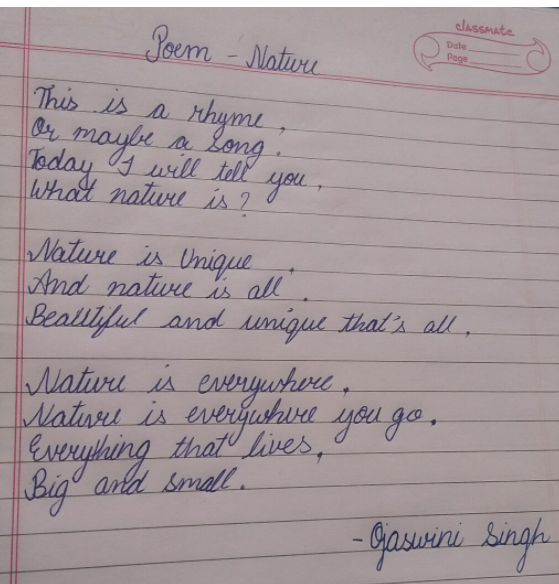 classmate
Date
Page
Poem - Nature
This is a rhyme,
Or maybe a song.
Today I will tell you,
What nature is?
Nature is Unique,
And nature is all.
Beautiful and unique that's all,
Nature is everywhere,
Nature is everywhere you go.
Everything that lives,
Big and small.
- Ojaswini Singh